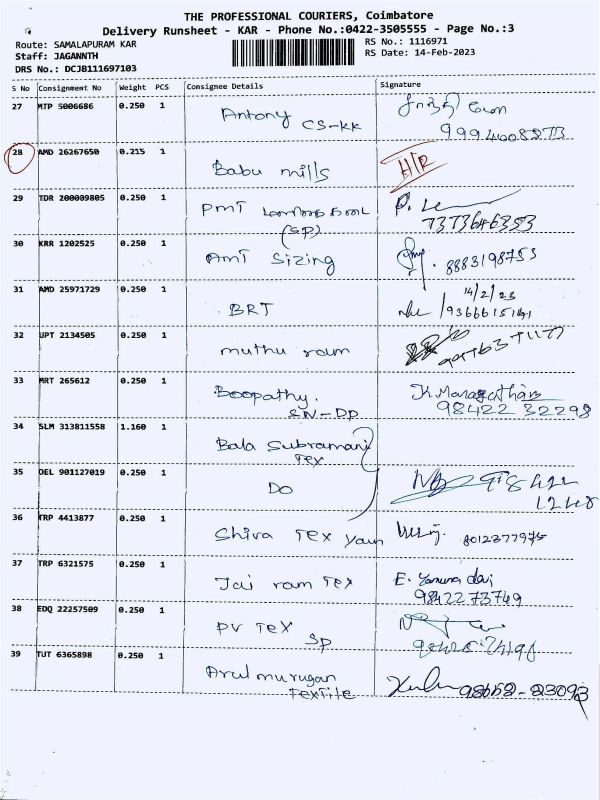 THE PROFESSIONAL COURIERS, Coimbatore
Delivery Runsheet - KAR - Phone No.:0422-3505555 - Page No.:3
Route: SAMALAPURAM KAR
RS No.: 1116971
Staff: JAGANNTH
RS Date: 14-Feb-2023
DRS No.: DCJB111697103
S No Consignment No Weight PCS Consignee Details Signature
27 MTP 5006686 0.250 1 Antony CS-KK
28 AMD 26267650 0.215 1 Babu mills H/R
29 TDR 200009805 0.250 1 PMT (SP) P. 7373646353
30 KRR 1202525 0.250 1 AMT Sizing 8883198753
31 AMD 25971729 0.250 1 BRT 14/2/23
32 UPT 2134505 0.250 1 muthu ram
33 MRT 265612 0.250 1 Boopathy. SN-DP 98422 32298
34 SLM 313811558 1.160 1 Bala Subramani Tex
35 DEL 901127019 0.250 1 DO
36 TRP 4413877 0.250 1 Shiva Tex Yarn 8012377975
37 TRP 6321575 0.250 1 Jai ram Tex E. Yamuna devi 9842273749
38 EDQ 22257509 0.250 1 PV Tex SP
39 TUT 6365898 0.250 1 Arul murugan Textile